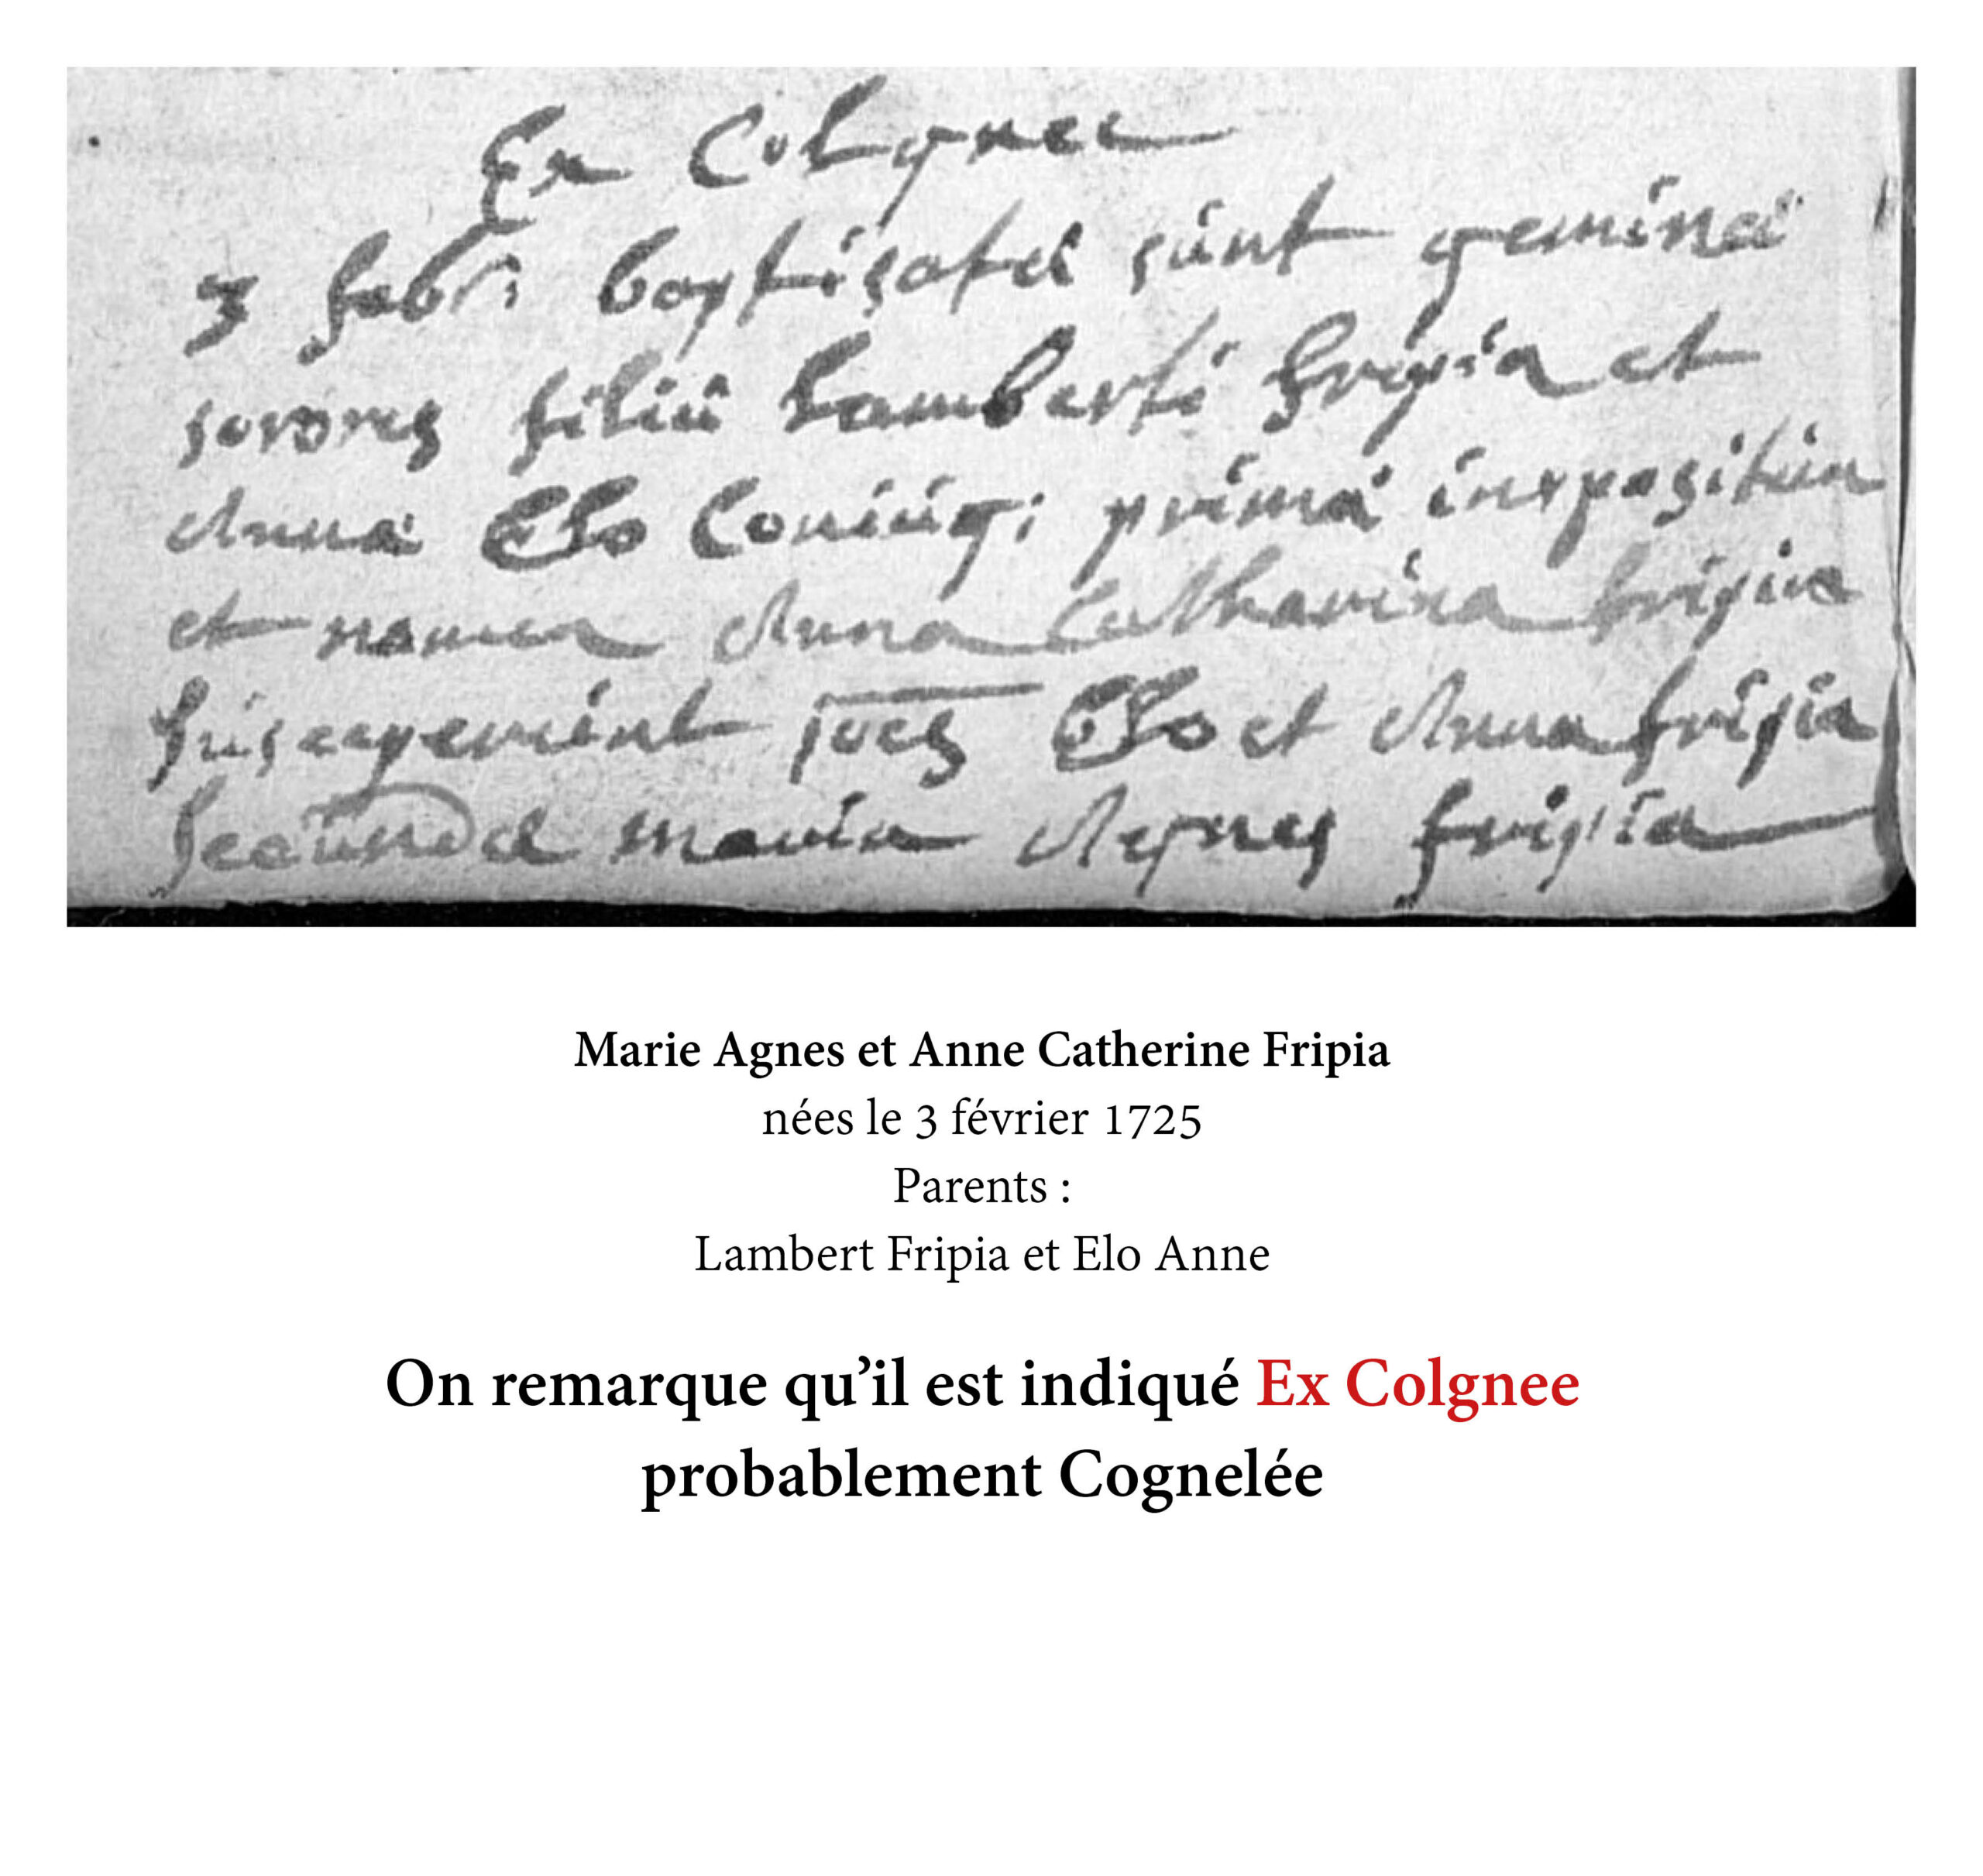 Ex Colgnee
3 febr: baptisatae sunt geminae
sorores filiae Lamberti fripia et
Anna Elo Coniug: prima impositum
et nomen Anna Catharina fripia
susceperunt Joes Elo et Anna fripia
secunda maria Agnes fripia
Marie Agnes et Anne Catherine Fripia
nées le 3 février 1725
Parents :
Lambert Fripia et Elo Anne
On remarque qu’il est indiqué Ex Colgnee
probablement Cognelée